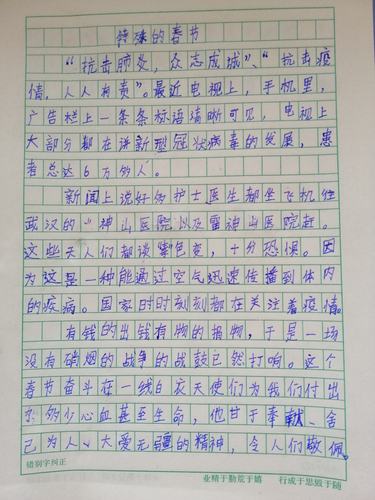 特殊的春节
“抗击肺炎，众志成城”、“抗击疫
情，人人有责”。最近电视上，手机里，
广告栏上一条条标语清晰可见，电视上
大部分都在讲新型冠状病毒的发展，患
者总达6万多人。
新闻上说好多护士医生都坐飞机往
武汉的火神山医院以及雷神山医院赶。
这些天人们都谈色变，十分恐惧。因
为这是一种能通过空气迅速传播到体内
的疾病。国家时时刻刻都在关注着疫情。
有钱的出钱有物的捐物，于是一场
没有硝烟的战争的战鼓已然打响。这个
春节奋斗在一线白衣天使们为我们付出
多少心血甚至生命，他甘于奉献、舍
己为人、大爱无疆的精神，令人们敬佩。
错别字纠正
业精于勤荒于嬉 行成于思毁于随